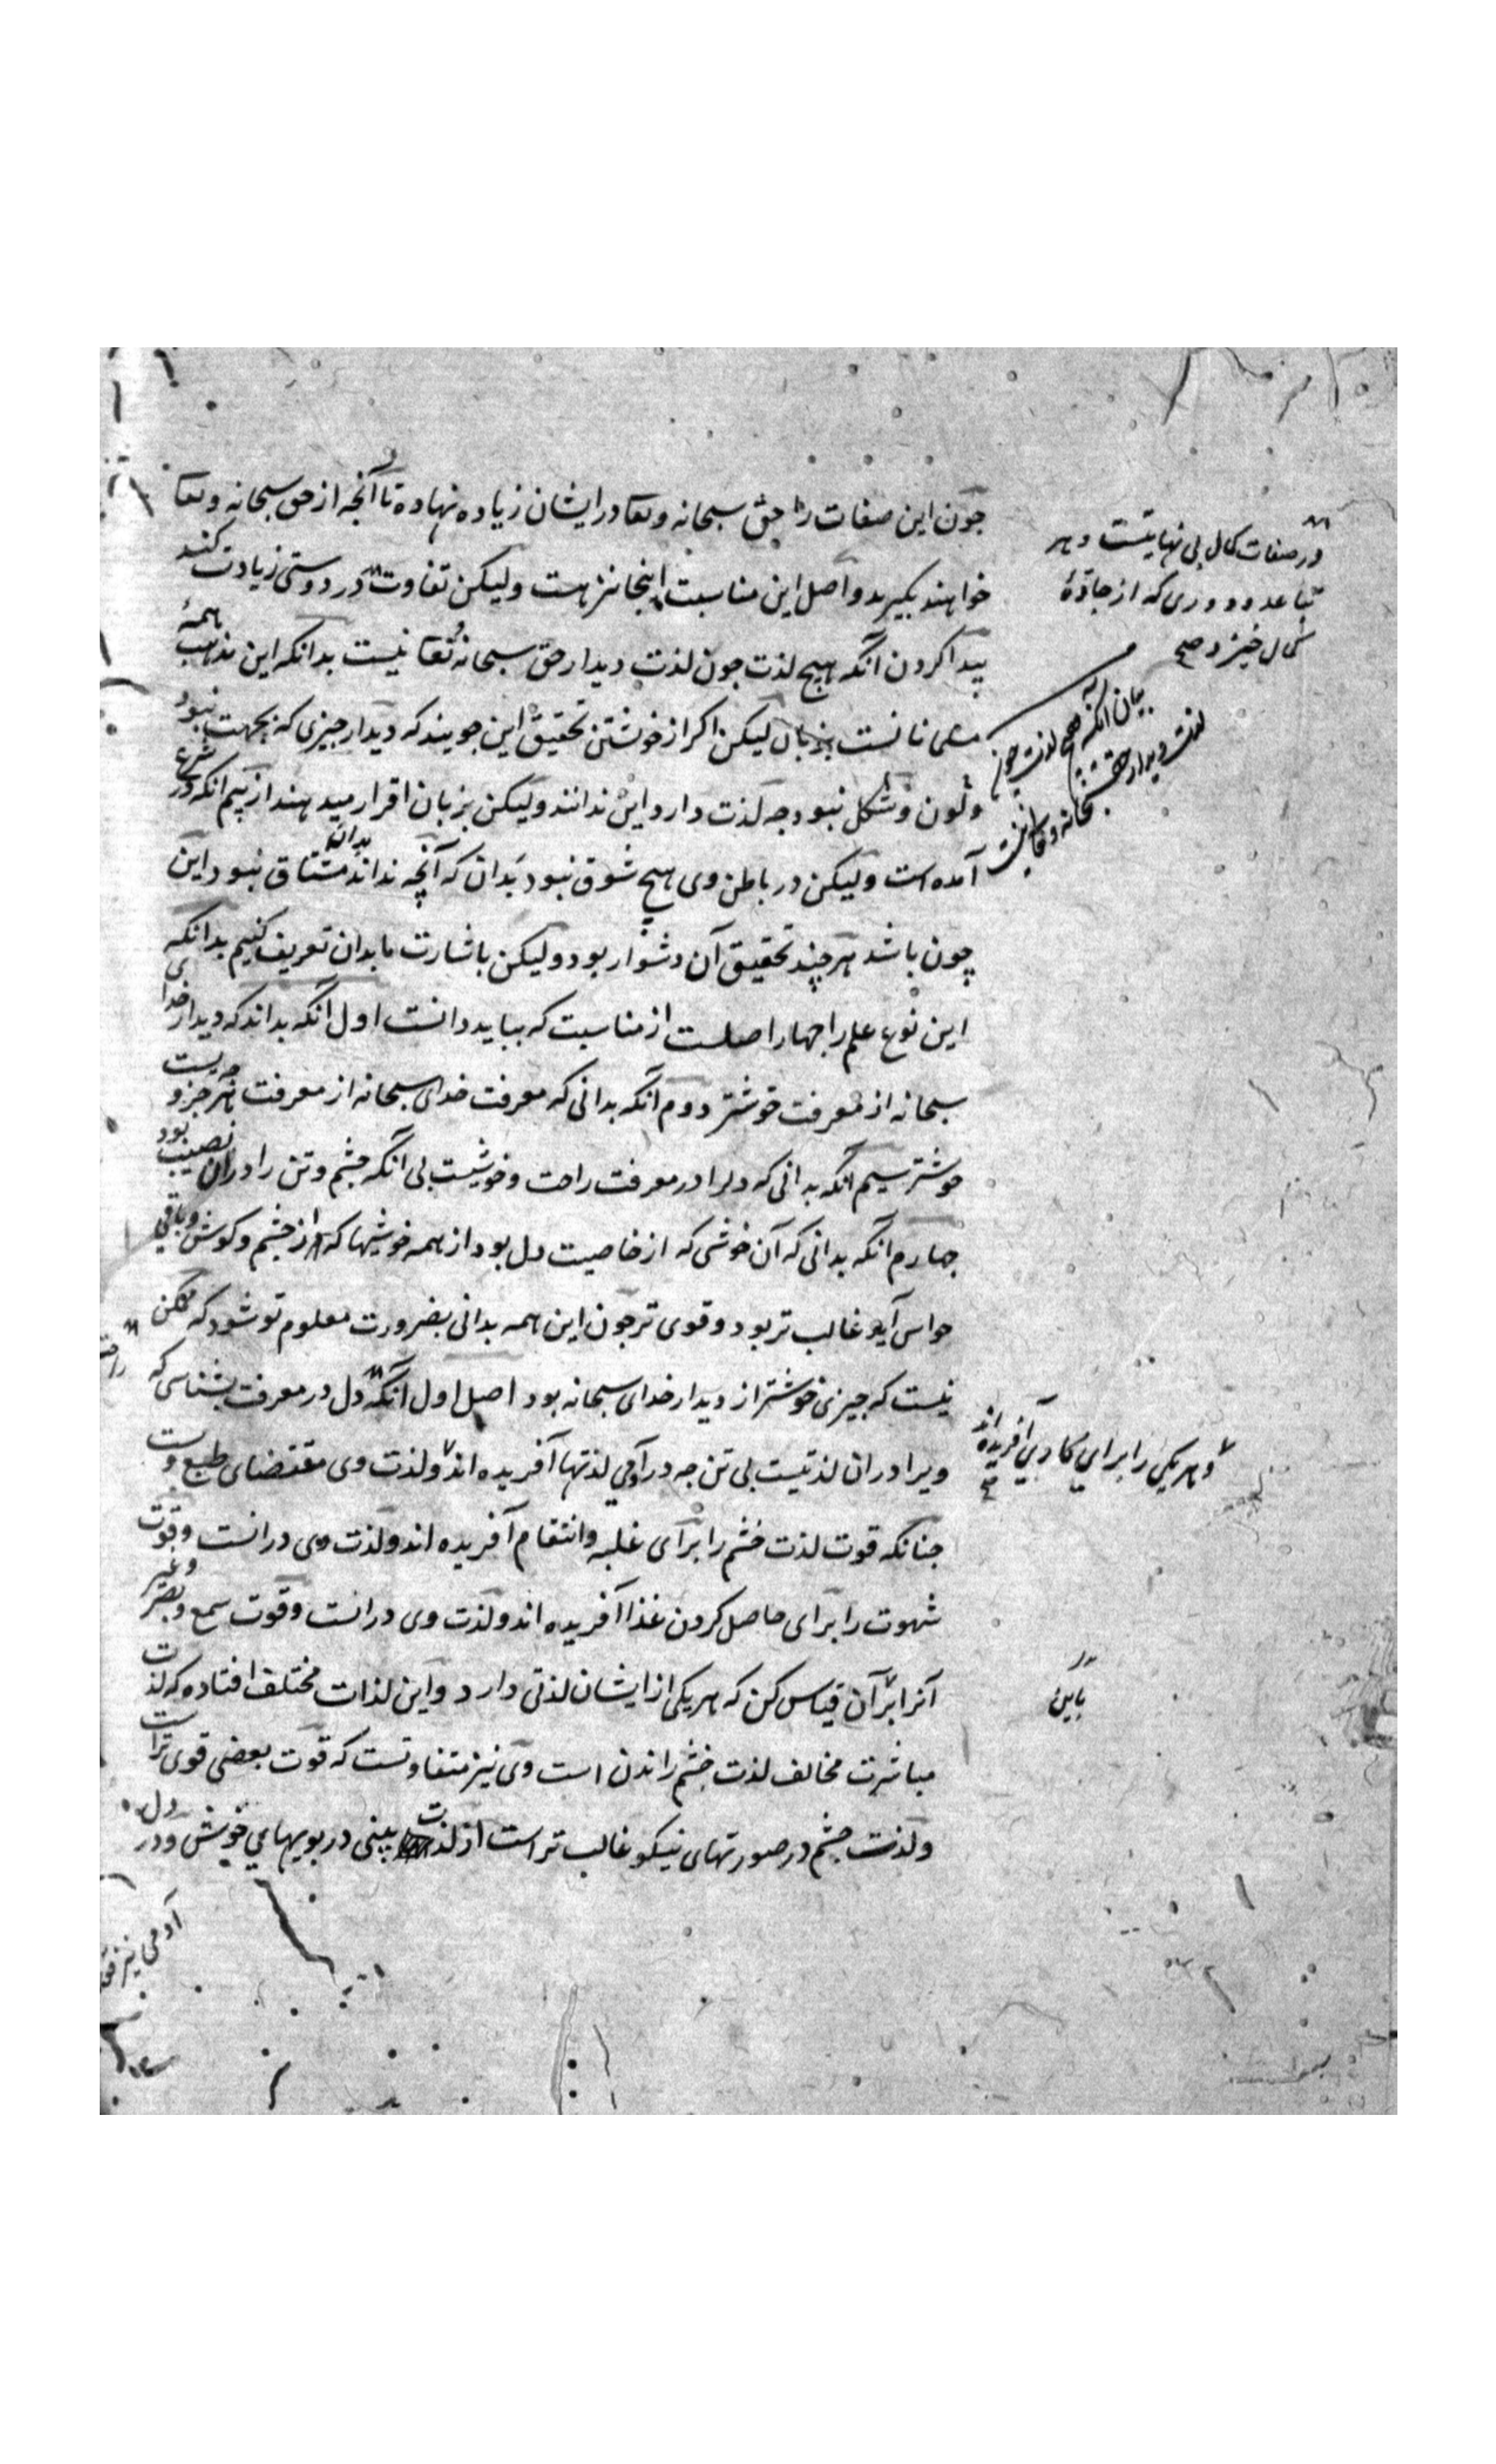 چون این صفات را حق سبحانه وتعا در ایشان زیاده نهاده تا آنجه از حق سبحانه وتعا
خواهند بگیرند و اصل این مناسبت اینجا نیز هست ولیکن تفاوت در دوستی زیادت کند
پیدا کردن آنکه هیچ لذت جون لذت دیدار حق سبحانه وتعا نیست بدانکه این مذهب همهٔ
مسلمانانست بزبان لیکن اکر از خویشتن تحقیق این جویند که دیدار جیزی که بجهت نبود
ولون وشکل نبود جه لذت دارد این ندانند ولیکن بزبان اقرار میدهند از بیم آنکه در شرع
آمده است ولیکن در باطن وی هیچ شوق نبود بدان که آنچه نداند بدان مشتاق نبود این
چون باشد هر چند تحقیق آن دشوار بود ولیکن باشارت ما بدان تعریف کنیم بدانکه
این نوع علم را جهار اصلست از مناسبت که بباید دانست اول آنکه بداند که دیدار خدای
سبحانه از معرفت خوشتر دوم آنکه بدانی که معرفت خدای سبحانه از معرفت هر جزو
خوشتر سیم آنکه بدانی که دلرا در معرفت راحت وخوشیست بی آنکه جشم وتن را دران نصیب بود
جهارم آنکه بدانی که آن خوشی که از خاصیت دل بود از همه خوشیها که از جشم وکوش وباقی
حواس آید غالب تر بود وقوی تر جون این همه بدانی بضرورت معلوم تو شود که ممکن
نیست که جیزی خوشتر از دیدار خدای سبحانه بود اصل اول آنکه دل در معرفت بشناسی که
ویرا دران لذتیست بی تن جه در آدمی لذتها آفریده اند ولذت وی مقتضای طبع وست
جنانکه قوت لذت خشم را برای غلبه وانتقام آفریده اند ولذت وی درانست وقوت
شهوت را برای حاصل کردن غذا آفریده اند ولذت وی درانست وقوت سمع وبصر وغیر
آنرا بر آن قیاس کن که هر یکی از ایشان لذتی دارد واین لذات مختلف افتاده که لذت
مباشرت مخالف لذت خشم راندن است وی نیز متفاوتست که قوت بعضی قوی تر است
ولذت جشم در صورتهای نیکو غالب تر است از لذت بینی در بویهای خوش ودر دل
در صفات کمال بی نهایتست وهر
تباعد ودوری که از جادهٔ
کمال خیزد صح
بیان آنکه هیچ لذت چون
لذت دیدار حق
سبحانه وتعا نیست
وهر یکی را برای کاری آفریده اند
صح
باین